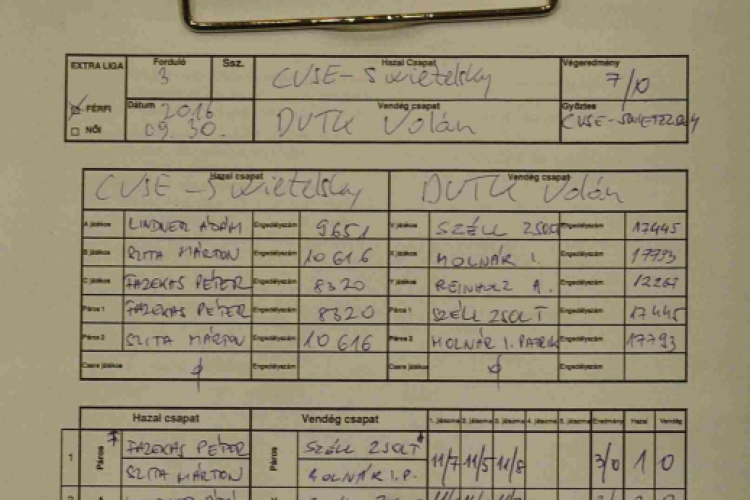 EXTRA LIGA Forduló Ssz. Hazai Csapat Végeredmény
3 CVSE - Swietelsky 7/0
FÉRFI Dátum Vendég csapat Győztes
NŐI 2016 09.30. DVTK Volán CVSE-SWIETELSKY
Hazai csapat Vendég csapat
CVSE - Swietelsky DVTK Volán
A játékos LINDNER ÁDÁM Engedélyszám 9651 V játékos SZÉLL ZSOLT Engedélyszám 17445
B játékos SZITA MÁRTON Engedélyszám 10616 X játékos MOLNÁR I. Engedélyszám 17793
C játékos FAZEKAS PÉTER Engedélyszám 8320 Y játékos REINHOLZ A. Engedélyszám
Páros 1 FAZEKAS PÉTER Engedélyszám 8320 Páros 1 SZÉLL ZSOLT Engedélyszám 17445
Páros 2 SZITA MÁRTON Engedélyszám 10616 Páros 2 MOLNÁR I. PATRIK Engedélyszám 17793
Csere játékos Engedélyszám Csere játékos Engedélyszám
Hazai csapat Vendég csapat 1. játszma 2. játszma 3. játszma 4. játszma 5. játszma Eredmény Hazai Vendég
1 Páros FAZEKAS PÉTER Páros SZÉLL ZSOLT 11/7 11/5 11/8 3/0 1 0
SZITA MÁRTON MOLNÁR I.P.